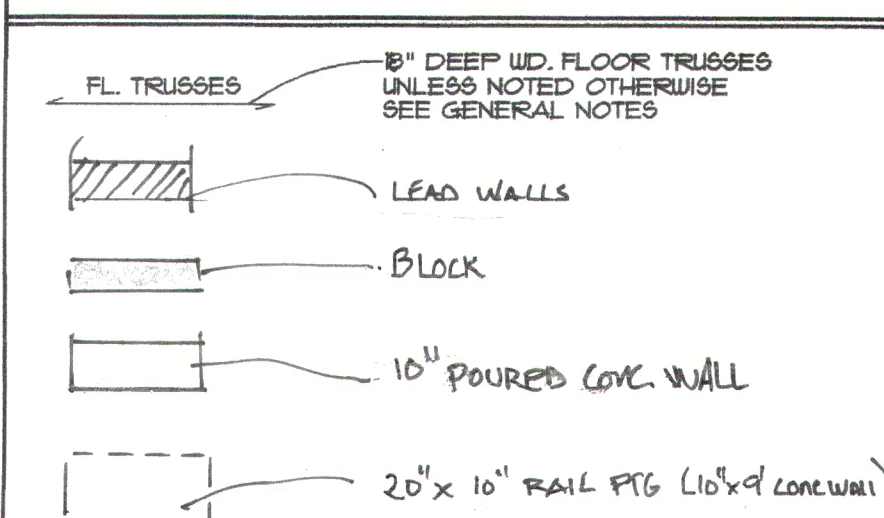 FL. TRUSSES
18" DEEP WD. FLOOR TRUSSES
UNLESS NOTED OTHERWISE
SEE GENERAL NOTES
LEAD WALLS
BLOCK
10" POURED CONC. WALL
20" x 10" RAIL FTG (10"x9' CONC WALL)